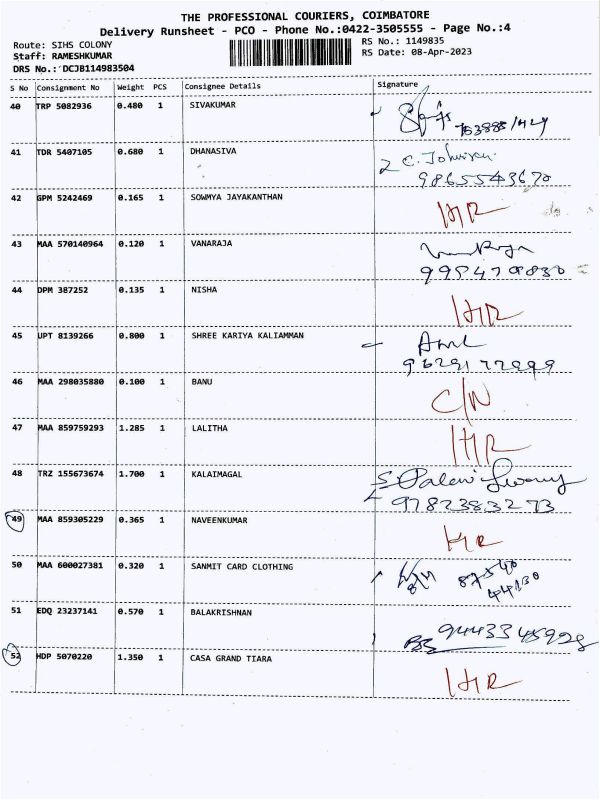 THE PROFESSIONAL COURIERS, COIMBATORE
Delivery Runsheet - PCO - Phone No.:0422-3505555 - Page No.:4
Route: SIHS COLONY RS No.: 1149835
Staff: RAMESHKUMAR RS Date: 08-Apr-2023
DRS No.: DCJB114983504
S No Consignment No Weight PCS Consignee Details Signature
40 TRP 5082936 0.480 1 SIVAKUMAR
41 TDR 5407105 0.680 1 DHANASIVA
9865543670
42 GPM 5242469 0.165 1 SOWMYA JAYAKANTHAN
HR
43 MAA 570140964 0.120 1 VANARAJA
44 DPM 387252 0.135 1 NISHA
HR
45 UPT 8139266 0.800 1 SHREE KARIYA KALIAMMAN
46 MAA 298035880 0.100 1 BANU
C/N
47 MAA 859759293 1.285 1 LALITHA
HR
48 TRZ 155673674 1.700 1 KALAIMAGAL
9782383273
49 MAA 859305229 0.365 1 NAVEENKUMAR
HR
50 MAA 600027381 0.320 1 SANMIT CARD CLOTHING
87540
44130
51 EDQ 23237141 0.570 1 BALAKRISHNAN
52 HDP 5070220 1.350 1 CASA GRAND TIARA
HR